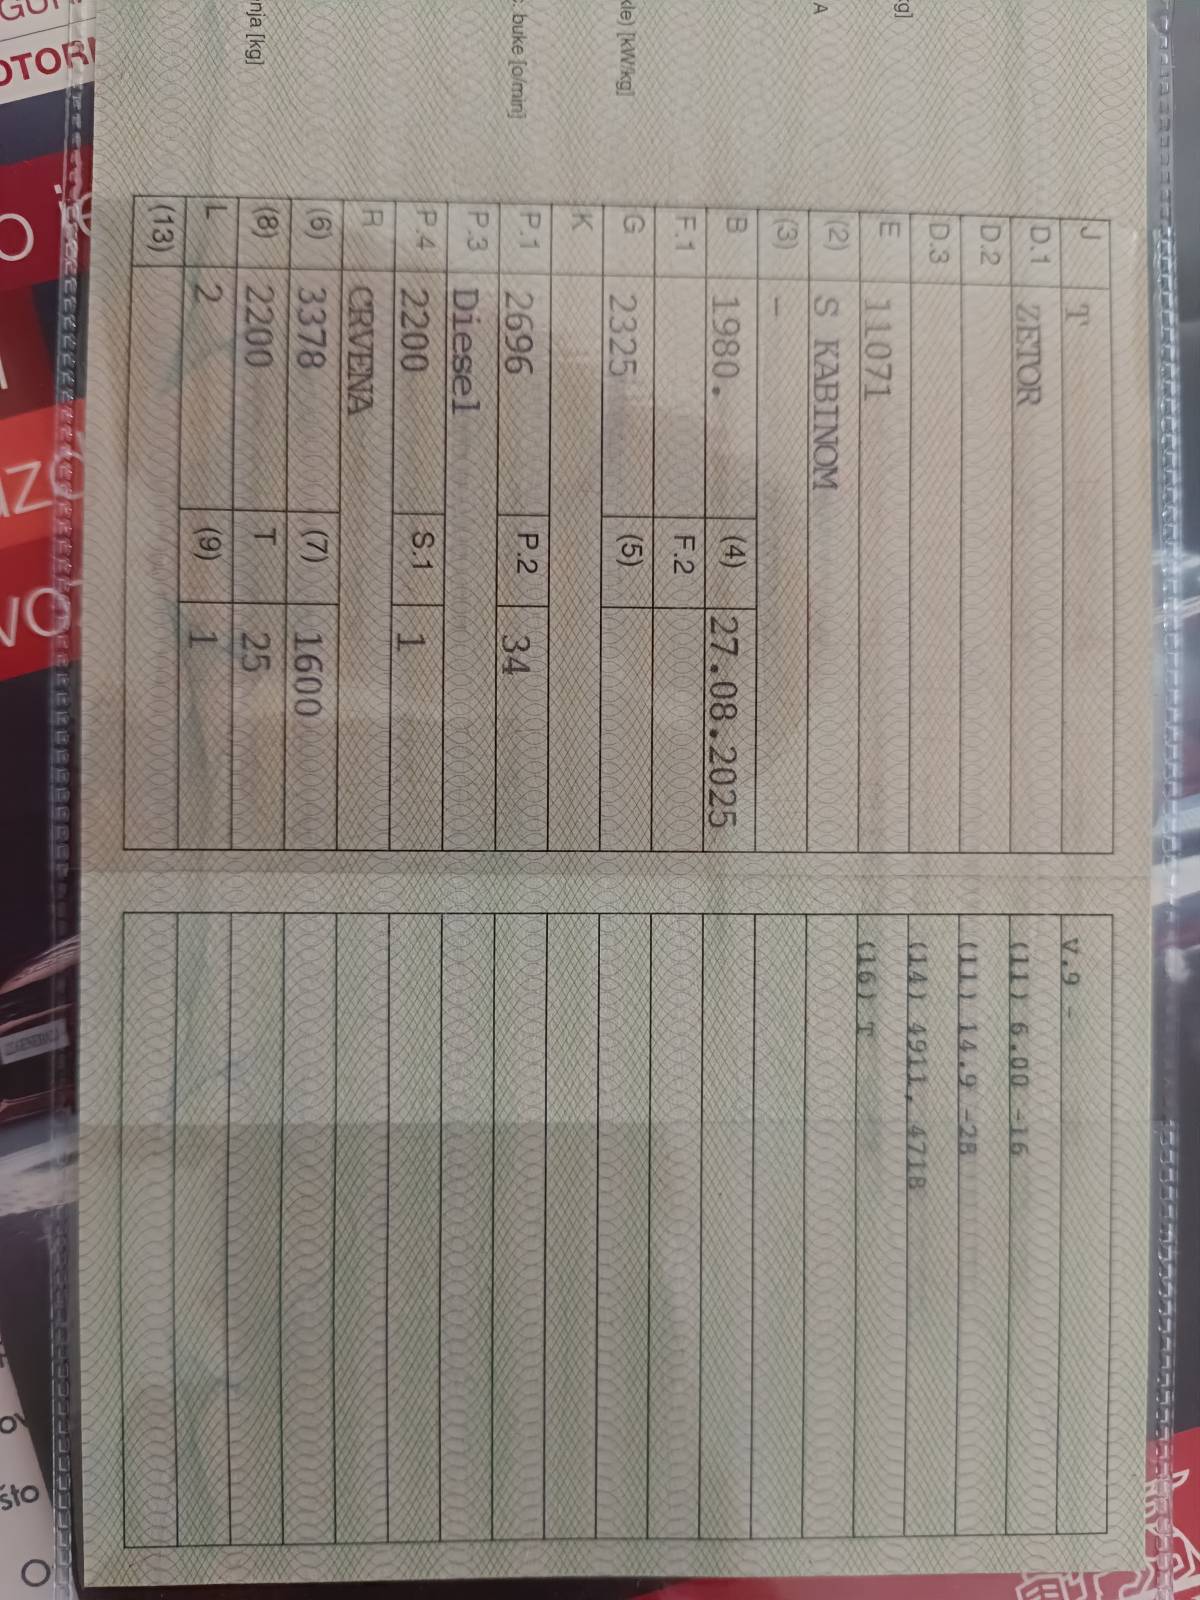 J T
D.1 ZETOR
D.2
D.3
E 11071
(2) S KABINOM
(3) -
B 1980. (4) 27.08.2025
F.1 F.2
G 2325 (5)
K
P.1 2696 P.2 34
P.3 Diesel
P.4 2200 S.1 1
R CRVENA
(6) 3378 (7) 1600
(8) 2200 T 25
L 2 (9) 1
(13)
V.9 -
(11) 6.00 -16
(11) 14.9 -28
(14) 4911, 4718
(16) T
kg]
A
kle) [kW/kg]
. buke [o/min]
nja [kg]
što